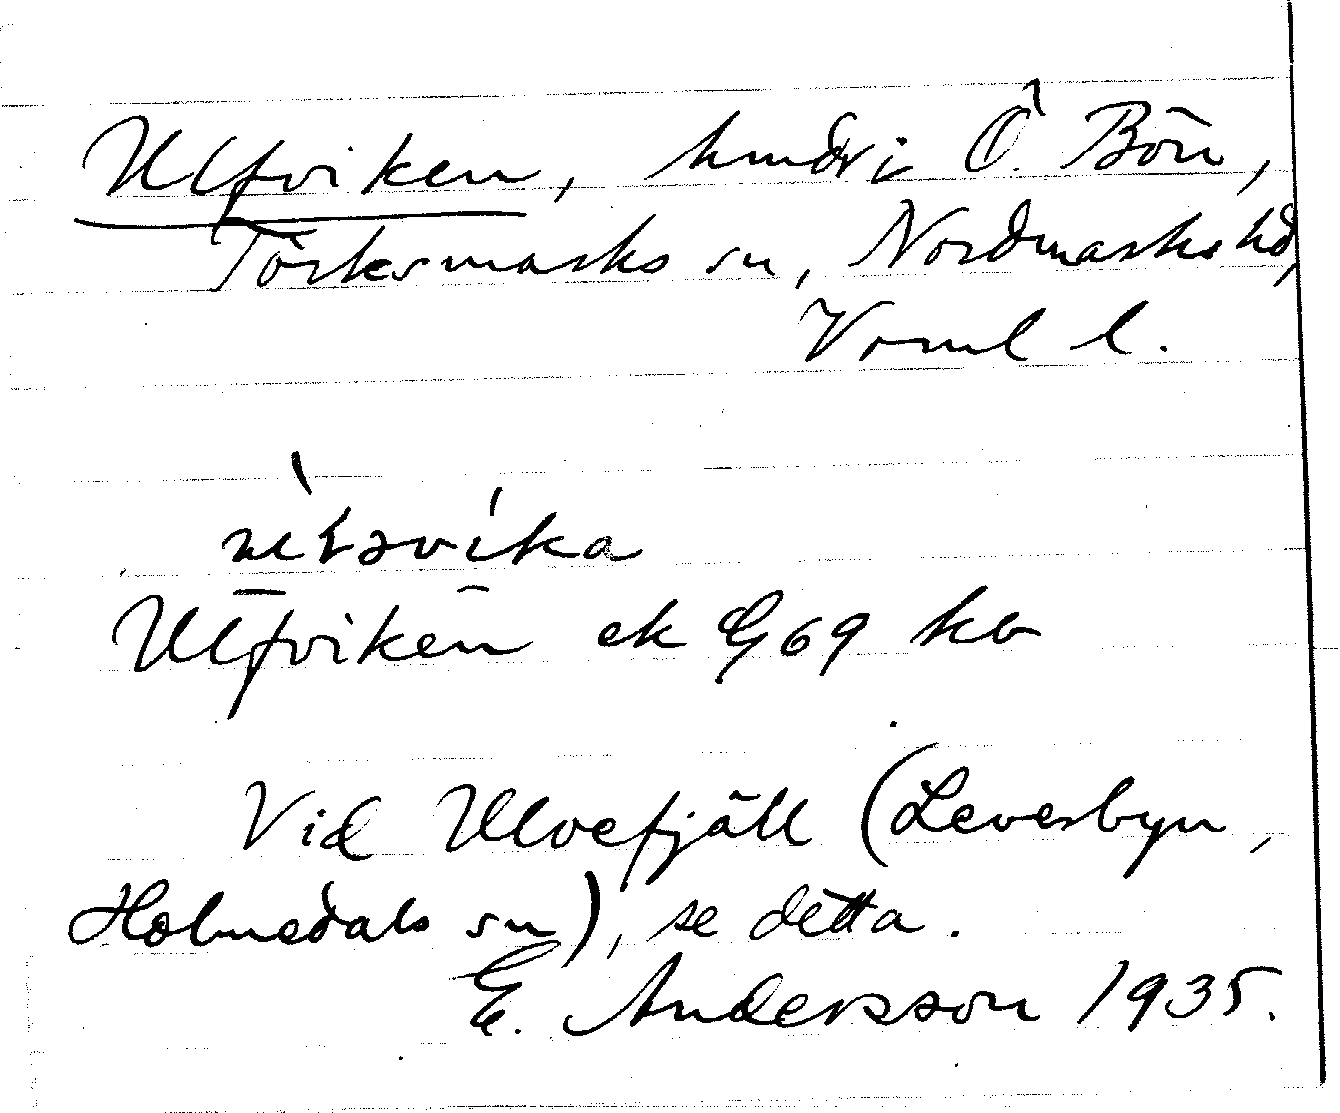 Ulfviken, hmdr i Ö. Bön,
Töcksmarks sn, Nordmarks hd,
Vrml l.
Ulfviken ek G69 ka
Vid Ulvefjäll (Leverbyn,
Holmedals sn), se detta.
E. Andersson 1935.